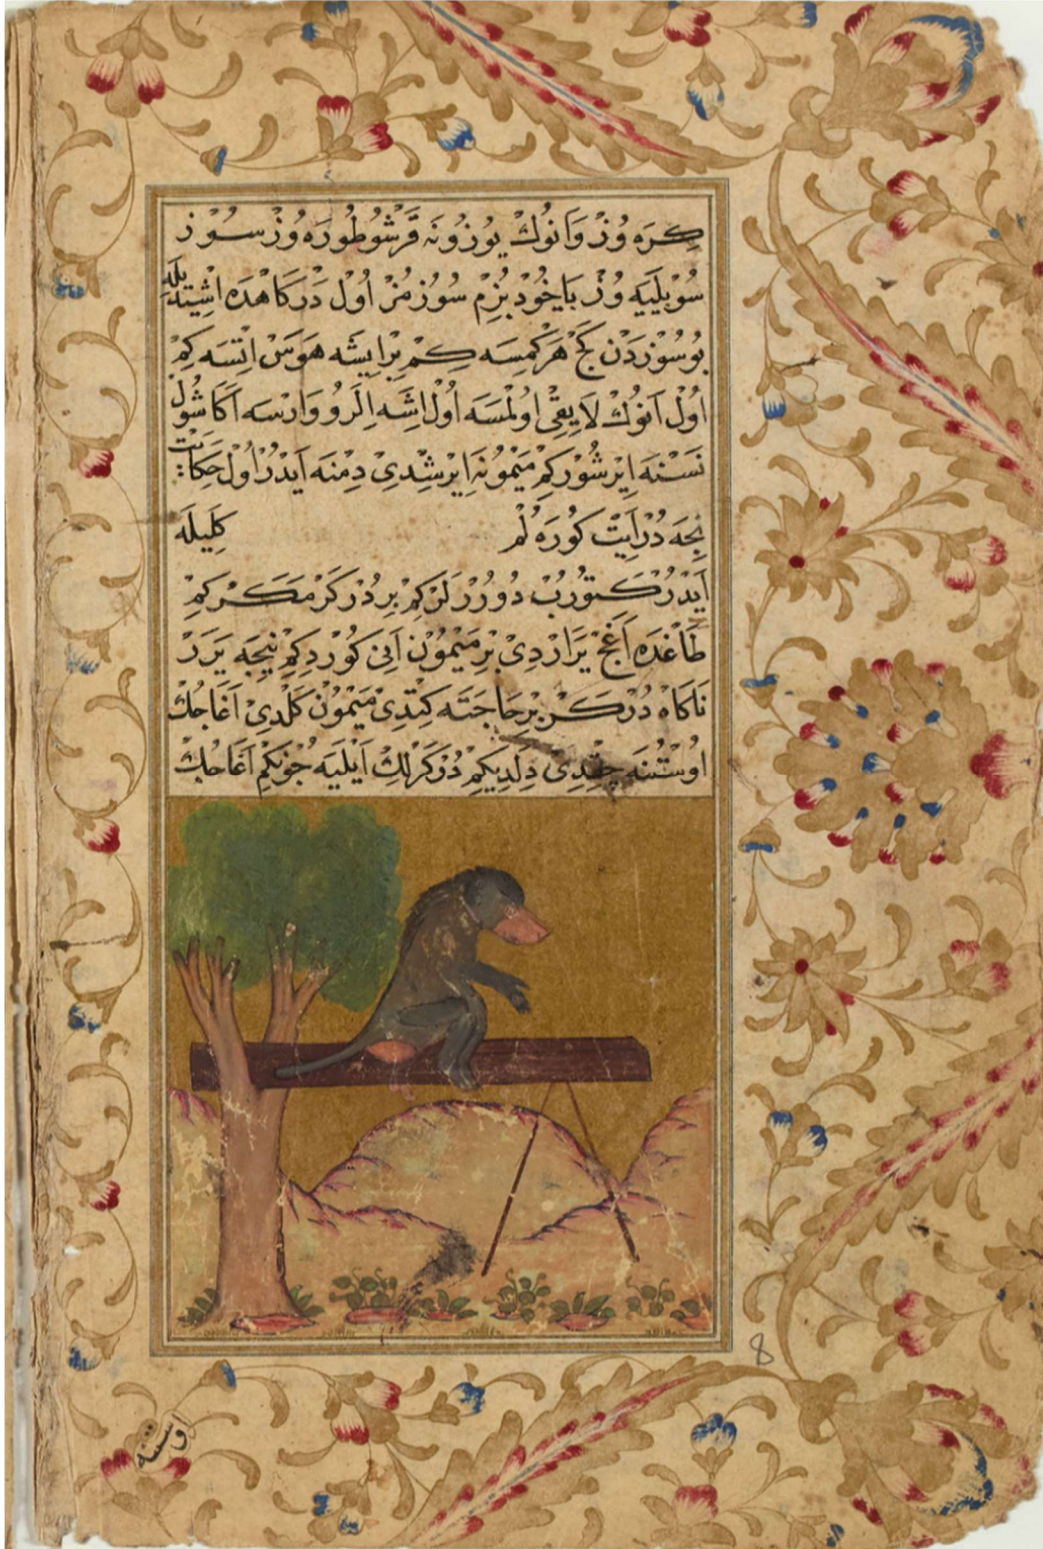 كِرَه وُزْ وَانُوكْ يوُزُونَه قَرْشُو طُورَه وُزْ سُوزْ
سُويلَيَه وُزْ يَاخُودْ بِزُمْ سُوزُمُزْ اُولْ دَرْكَاهْدَه اِشِيتِلَه
بُو سُوزْدَنْ كَجْ هَرْ كِمْسَه كِمْ بِرْ اِيشَه هَوَسْ اِتْسَه كِمْ
اُولْ اَنُوكْ لَايِقِى اوُلْمَسَه اُولْ اِشَه اِلَرُو وَارْسَه اَكَا شُولْ
نَسْنَه اِيْرِشُورْ كِمْ مَيْمُونَه اِيرِشْدِى دِمْنَه اَيْدُرْ اوُلْ حِكَايَتْ
نِجَه دُرْ اَيِتْ كُورَه لُمْ كَلِيلَه
اَيْدُرْ كَتُورُبْ دُورُرْلَرْ كِمْ بِرْ دُرُكَرْ مَكَرْ كِمْ
طَاغْدَه اَغَجْ يَرَارْدِى بِرْ مَيْمُونْ اَنِى كُورْدِ كِمْ نِيجَه يَرَرْ
نَاكَاهْ دُرُكَرْ بِرْ حَاجَتَه كِتْدِى مَيْمُونْ كَلْدِى اَغَاجُكْ
اوُسْتُنَه چِقْدِى دِلَدِيكِمْ دُرُكَرْلِكْ اَيْلَيَه چُونْكِمْ اَغَاجُكْ
اوستنه
8